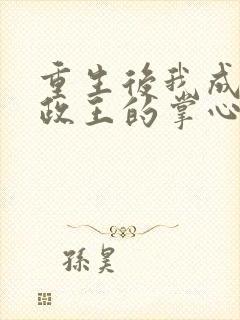 重生後我成
政王的掌心
孫昊